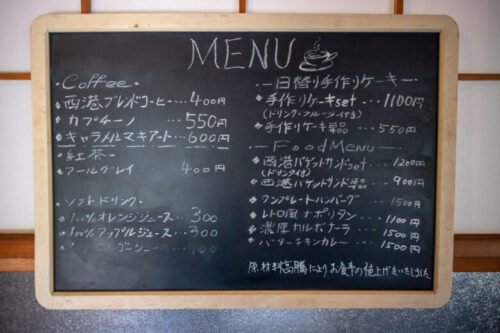 MENU
・Coffee・
西港ブレンドコーヒー・・・400円
カプチーノ 550円
キャラメルマキアート・・600円
紅茶
アールグレイ ・・・400円
ソフトドリンク・
100%オレンジジュース・・・300
100%アップルジュース・・・300
400
―日替り手作りケーキ―
手作りケーキset・・・1100円
(ドリンク・フルーツ付き)
手作りケーキ単品・・・550円
―FoodMenu―
西港バゲットサンドset 1200円
(ドリンク付き)
西港バゲットサンド単品・・900円
ワンプレートハンバーグ 1500円
レトロ風ナポリタン・・1100円
濃厚カルボナーラ・・・1500円
バターチキンカレー・・・1500円
原材料高騰によりお食事の値上げをいたしました。